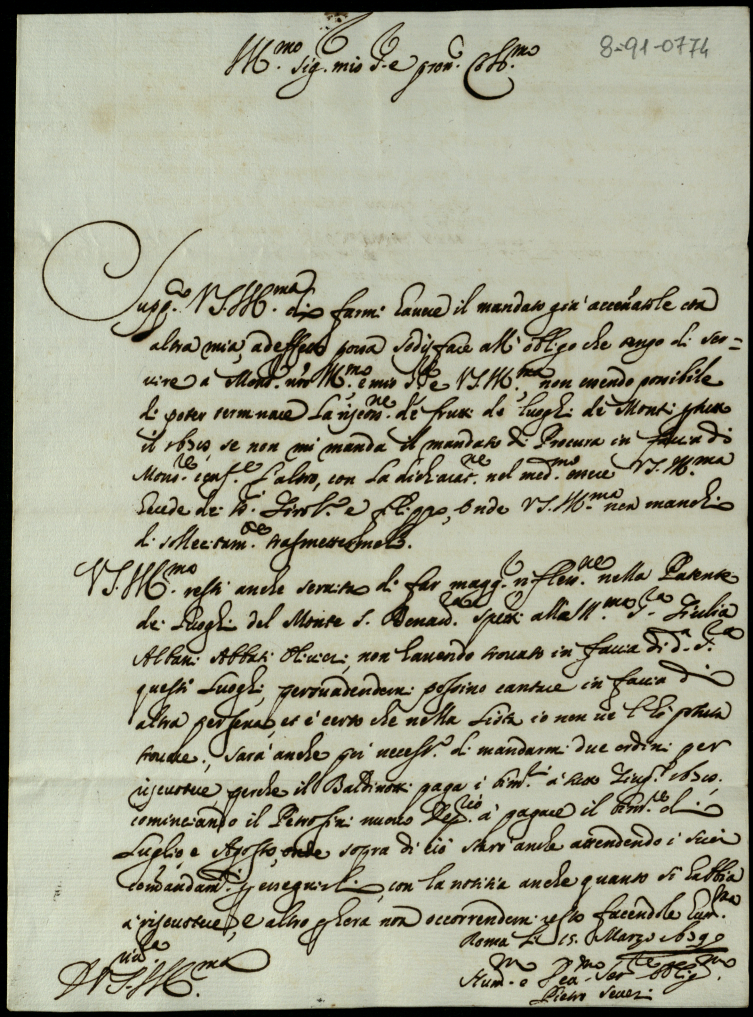 8-91-0774
Ill.mo Sig. mio S.r e Pron. Coll.mo
Supp.co V.S. Ill.ma di farmi havere il mandato già accennatole con
altra mia, ad effetto possa sodisfare all' obligo che tengo di ser=
vire a Mons. nro Ill.mo e mio S.re e V.S. Ill.ma non essendo possibile
di poter terminare la riscos.ne de frutti de luoghi de Monti
il se non mi manda il mandato di Procura in faccia di
Mons.re l'altro, con la dichiarat.ne nel med.mo essere V.S. Ill.ma
herede de e Filippo, Onde V.S. Ill.ma non manchi
di sollecitam.te trasmettermeli.
V.S. Ill.ma resti anche servita di far magg.r rifless.ne nella Patente
de Luoghi del Monte S. Bonav.a spett. alla Ill.ma S.ra Giulia
Albani Abbati Olivieri, non havendo trovato in faccia di d.a S.ra
questi Luoghi, persuadendomi possino cantare in faccia di
altra persona, et è certo che nella Lista io non ve l'hò potuta
trovare. Sarà anche poi necess.o di mandarmi due ordini per
riscuotere perche il Baldinotti paga i bim.i à tutto Giug.o
cominciando il Petrosini nuovo à pagare il bim.re di
Luglio e Agosto, onde sopra di ciò starò anche attendendo i suoi
comandam.ti p esseguirli, con la notitia anche quanto si habbia
à riscuotere, e altro p hora non occorrendomi resto facendole hum.ma
riv.a
Roma li 15. Marzo
D V.S. Ill.ma
Hum.o Dev.mo Ser.re Oblig.mo
Pietro Severi